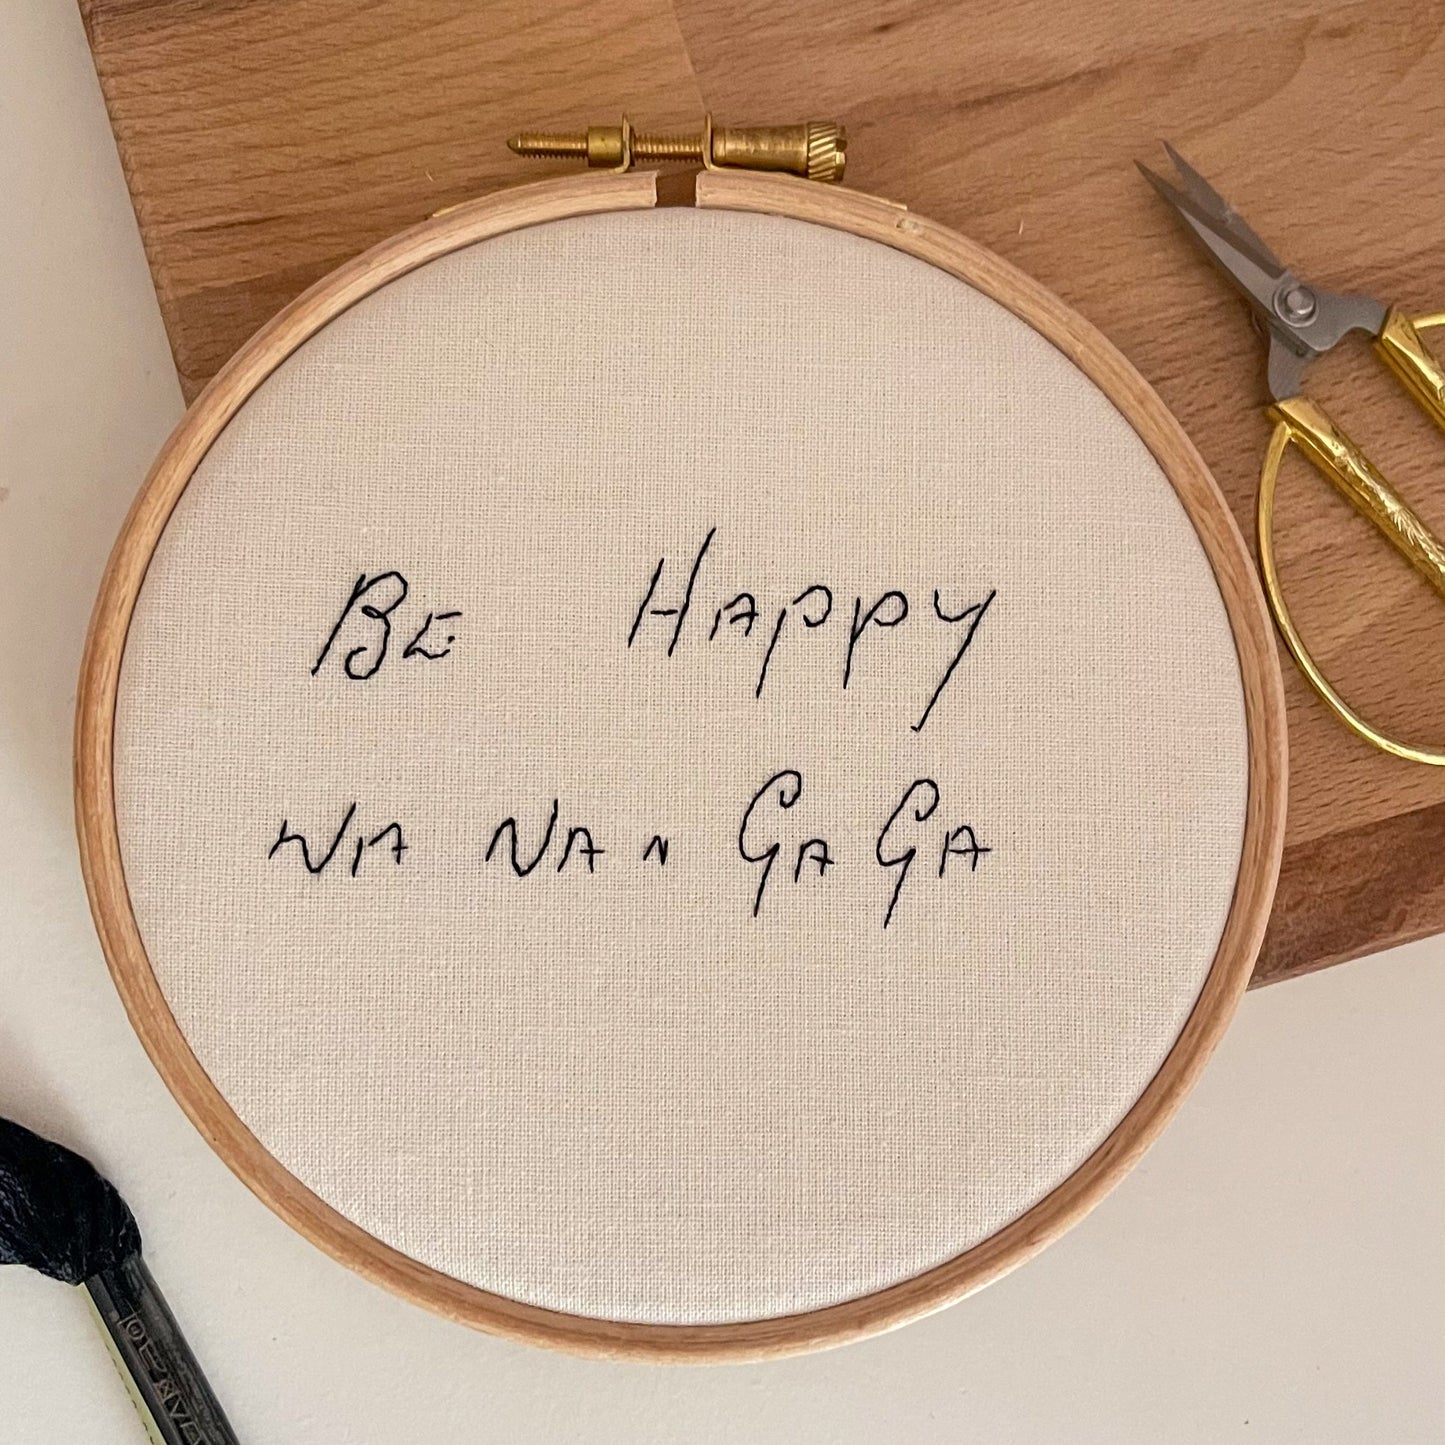 Be Happy
WA NA N GA GA